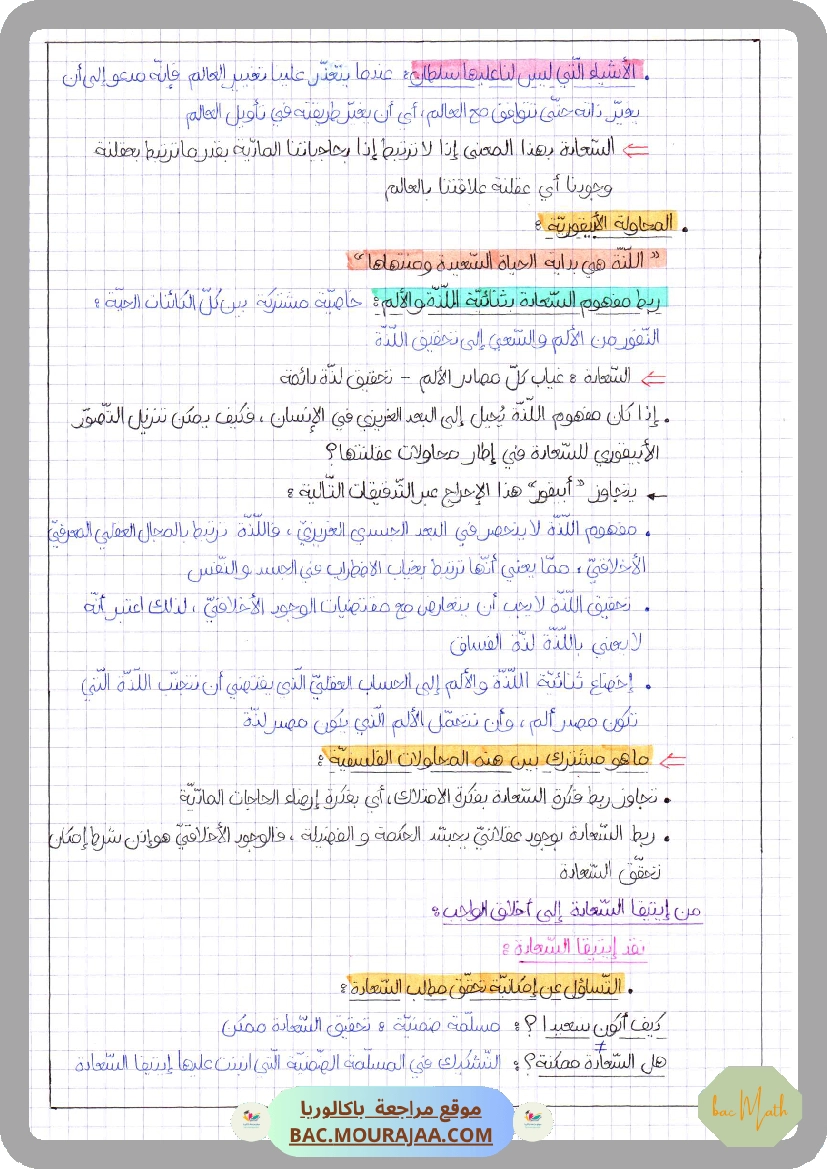 . الأشياء الّتي ليس لنا عليها سلطان: عندما يتعذّر علينا تغيير العالم فإنّه مدعو إلى أن
يغيّر ذاته حتّى تتوافق مع العالم، أي أن يغيّر طريقته في تأويل العالم
⇐ السّعادة بهذا المعنى إذا لا ترتبط إذا بحاجياتنا المادّية بقدر ما ترتبط بعقلنة
وجودنا أي عقلنة علاقتنا بالعالم
. المحاولة الأبيقوريّة:
" اللّذّة هي بداية الحياة السّعيدة ومنتهاها"
ربط مفهوم السّعادة بثنائيّة اللّذّة والألم: خاصّيّة مشتركة بين كلّ الكائنات الحيّة:
النّفور من الألم والسّعي إلى تحقيق اللّذّة
⇐ السّعادة: غياب كلّ مصادر الألم - تحقيق لذّة دائمة
. إذا كان مفهوم اللّذّة يُحيل إلى البعد الغريزي في الإنسان، فكيف يمكن تنزيل التّصوّر
الأبيقوري للسّعادة في إطار محاولات عقلنتها؟
← يتجاوز "أبيقور" هذا الإحراج عبر التّدقيقات التّالية:
. مفهوم اللّذّة لا ينحصر في البعد الجسدي الغريزيّ، فاللّذّة ترتبط بالمجال العقلي المعرفيّ
الأخلاقيّ، ممّا يعني أنّها ترتبط بغياب الاضطراب في الجسد والنّفس
. تحقيق اللّذّة لا يجب أن يتعارض مع مقتضيات الوجود الأخلاقيّ، لذلك اعتبر أنّه
لا يعني باللّذّة لذّة الفساق
. إخضاع ثنائيّة اللّذّة والألم إلى الحساب العقليّ الّذي يقتضي أن نتجنّب اللّذّة الّتي
تكون مصدر ألم، وأن نتحمّل الألم الّذي يكون مصدر لذّة
⇐ ما هو مشترك بين هذه المحاولات الفلسفيّة:
. تجاوز ربط فكرة السّعادة بفكرة الامتلاك، أي بفكرة إرضاء الحاجات المادّيّة
. ربط السّعادة بوجود عقلانيّ يجسّد الحكمة والفضيلة، فالوجود الأخلاقيّ هو إذن شرط إمكان
تحقّق السّعادة
من إيتيقا السّعادة إلى أخلاق الواجب:
نقد إيتيقا السّعادة:
. التّساؤل عن إمكانيّة تحقّق مطالب السّعادة:
كيف أكون سعيدا؟: مسلّمة ضمنيّة: تحقيق السّعادة ممكن
≠
هل السّعادة ممكنة؟: التّشكيك في المسلّمة الضّمنيّة الّتي انبنت عليها إيتيقا السّعادة
موقع مراجعة باكالوريا
BAC.MOURAJAA.COM
bac Math